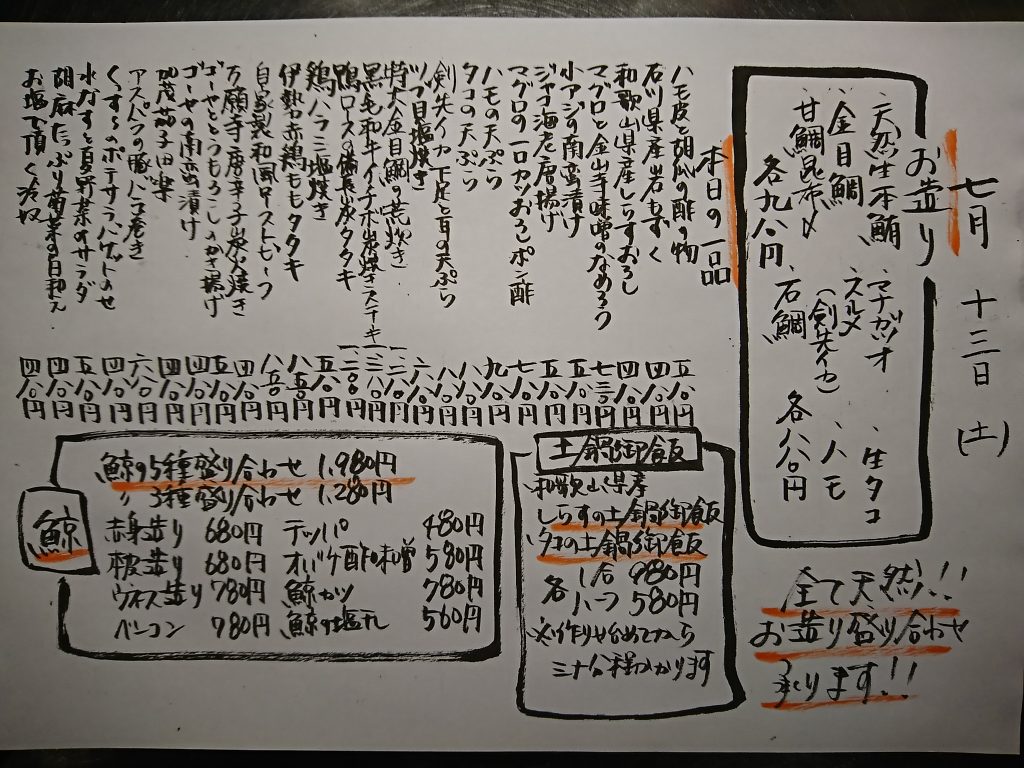 七月 十三日 (土)
お造り
、天然生本鮪 、マナガツオ 、生タコ
、金目鯛 、スルメ (剣先イカ) 、ハモ
、甘鯛昆布〆 、石鯛
各九八〇円 各八八〇円
全て天然!!
お造り盛り合わせ
承ります!!
本日の一品
ハモ皮と胡瓜の酢の物 五八〇円
石川県産岩もずく 四八〇円
和歌山県産しらすおろし 四八〇円
マグロと金山寺味噌のなめろう 七三〇円
小アジの南蛮漬け 五八〇円
ジャコ海老唐揚げ 五八〇円
マグロの一口カツおろしポン酢 七八〇円
ハモの天ぷら 九八〇円
タコの天ぷら 八八〇円
剣先イカ下足と耳の天ぷら 八八〇円
ツブ貝塩焼き 六八〇円
特大金目鯛の荒炊き 一、二八〇円
黒毛和牛イチボ炭焼きステーキ 一、三八〇円
鴨ロースの備長炭タタキ
鶏ハラミ塩焼き 五八〇円
伊勢赤鶏ももタタキ 八五〇円
自家製和風ローストビーフ 八五〇円
万願寺唐辛子炭火焼き 四八〇円
ゴーヤととうもろこしかき揚げ 五八〇円
ゴーヤの南蛮漬け 四八〇円
加茂茄子田楽 四八〇円
アスパラの豚バラ巻き 六八〇円
くずし〜のポテサラバゲットのせ 四八〇円
水ガすと夏野菜のサラダ 五八〇円
胡麻たっぷり菊菜の白和え 四八〇円
お塩で頂く冷奴 四八〇円
土鍋御飯
、和歌山県産
しらすの土鍋御飯
、タコの土鍋御飯
各 一合 980円
ハーフ 580円
※作り始めてから
三十分程かかります
鯨
鯨の5種盛り合わせ 1,980円
〃 3種盛り合わせ 1,280円
赤身造り 680円 テッパ 480円
本皮造り 680円 オバケ酢味噌 580円
ウネス造り 780円 鯨カツ 780円
ベーコン 780円 鯨の塩タレ 560円